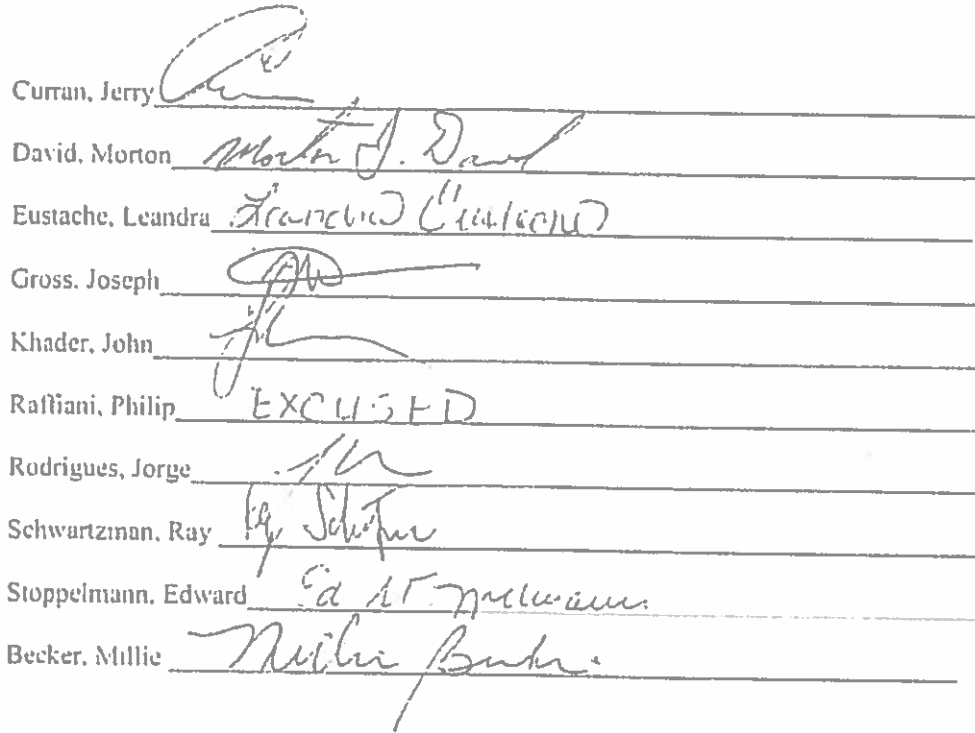 Curran, Jerry
David, Morton Morton J. David
Eustache, Leandra Leandra Eustache
Gross, Joseph
Khader, John
Raffiani, Philip EXCUSED
Rodrigues, Jorge
Schwartzman, Ray Ray
Stoppelmann, Edward Ed
Becker, Millie Millie Becker